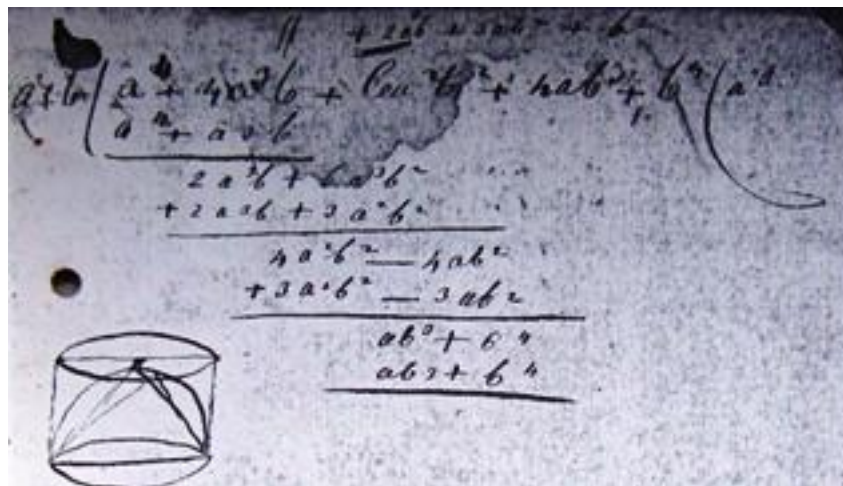 + 2ab + 3ab² + b
a+b ( a⁴ + 4a³b + 6a²b² + 4ab³ + b⁴ ( a³
a⁴ + a3b
2a³b + 6a²b²
+ 2a3b + 3a²b²
4a²b² — 4ab²
+ 3a²b² — 3ab2
ab³ + b4
ab3 + b4